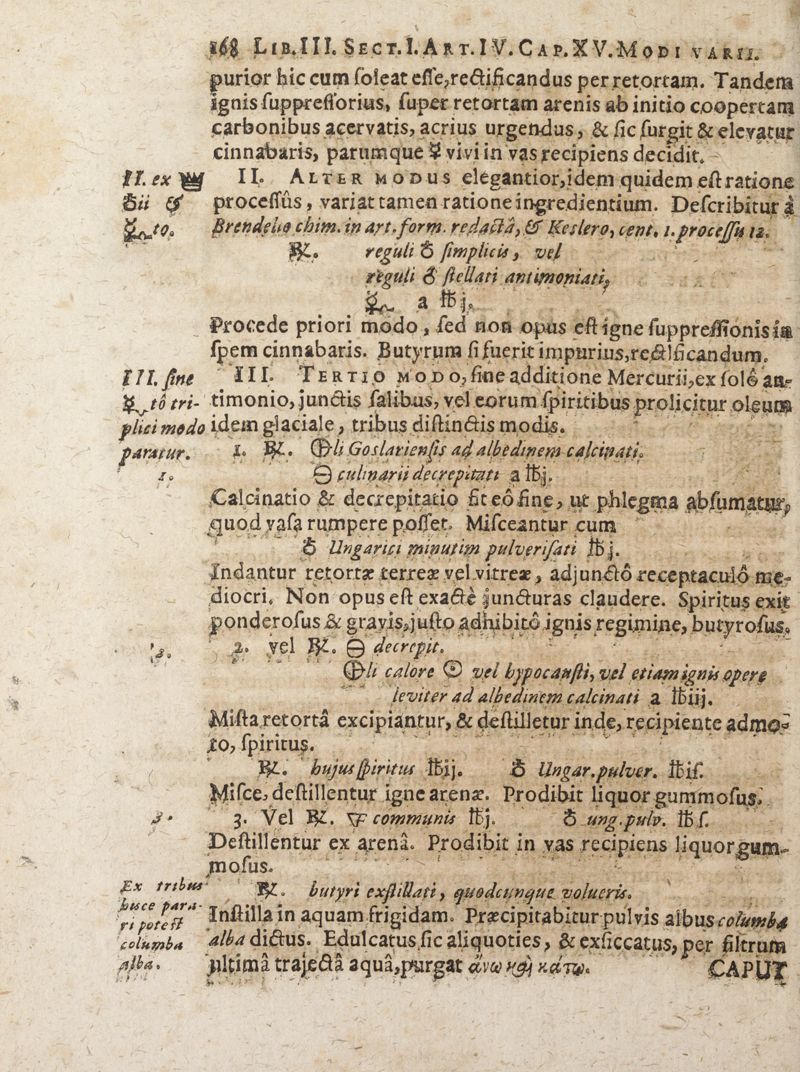 168 LIB.III. SECT.I.ART.IV.CAP.XV.MODI VARII.
purior hic cum soleat esse,rectificandus per retortam. Tandem
ignis suppressorius, super retortam arenis ab initio coopertam
carbonibus acervatis, acrius urgendus, & sic surgit & elevatur
cinnabaris, parumque ☿ vivi in vas recipiens decidit.
II. ex
♁ii &
to.
II. ALTER MODUS elegantior,idem quidem est ratione
processûs, variat tamen ratione ingredientium. Describitur â
Brendelio chim. in art.form. redactâ, & Keslero, cent. 1.processu 12.
℞. reguli ♁ simplicis, vel
reguli ♁ stellati antimoniati,
a ℔j.
Procede priori modo, sed non opus est igne suppressionis in
spem cinnabaris. Butyrum si fuerit impurius,rectificandum.
III. sine
to tri-
plici modo
paratur.
III. TERTIO MODO, sine additione Mercurii,ex solô an-
timonio, junctis salibus, vel eorum spiritibus prolicitur oleum
idem glaciale, tribus distinctis modis.
1.
1. ℞. li Goslariensis ad albedinem calcinati.
🜔 culinarii decrepitati a ℔j.
Calcinatio & decrepitatio fit eô fine, ut phlegma absumatur,
quod vasa rumpere posset. Misceantur cum
♁ Ungarici minutim pulverisati ℔j.
Indantur retortæ terreæ vel vitreæ, adjunctô receptaculô me-
diocri. Non opus est exactè juncturas claudere. Spiritus exit
ponderosus & gravis,justo adhibitô ignis regimine, butyrosus.
2.
2. vel ℞. 🜔 decrepit.
li calore ☉ vel hypocausti, vel etiam ignis opere
leviter ad albedinem calcinati a ℔iij.
Mista retortâ excipiantur, & destilletur inde, recipiente admo-
to, spiritus.
℞. hujus spiritus ℔ij. ♁ Ungar.pulver. ℔is.
Misce, destillentur igne arenæ. Prodibit liquor gummosus.
3.
3. Vel ℞. communis ℔j. ♁ ung.pulv. ℔s.
Destillentur ex arenâ. Prodibit in vas recipiens liquor gum-
mosus.
Ex tribus
hisce para-
ri potest
columba
alba.
℞. butyri exstillati, quodcunque volueris.
Instilla in aquam frigidam. Præcipitabitur pulvis albus columba
alba dictus. Edulcatus sic aliquoties, & exsiccatus, per filtrum
ultimâ trajectâ aquâ,purgat ἄνω καὶ κάτω.
CAPUT